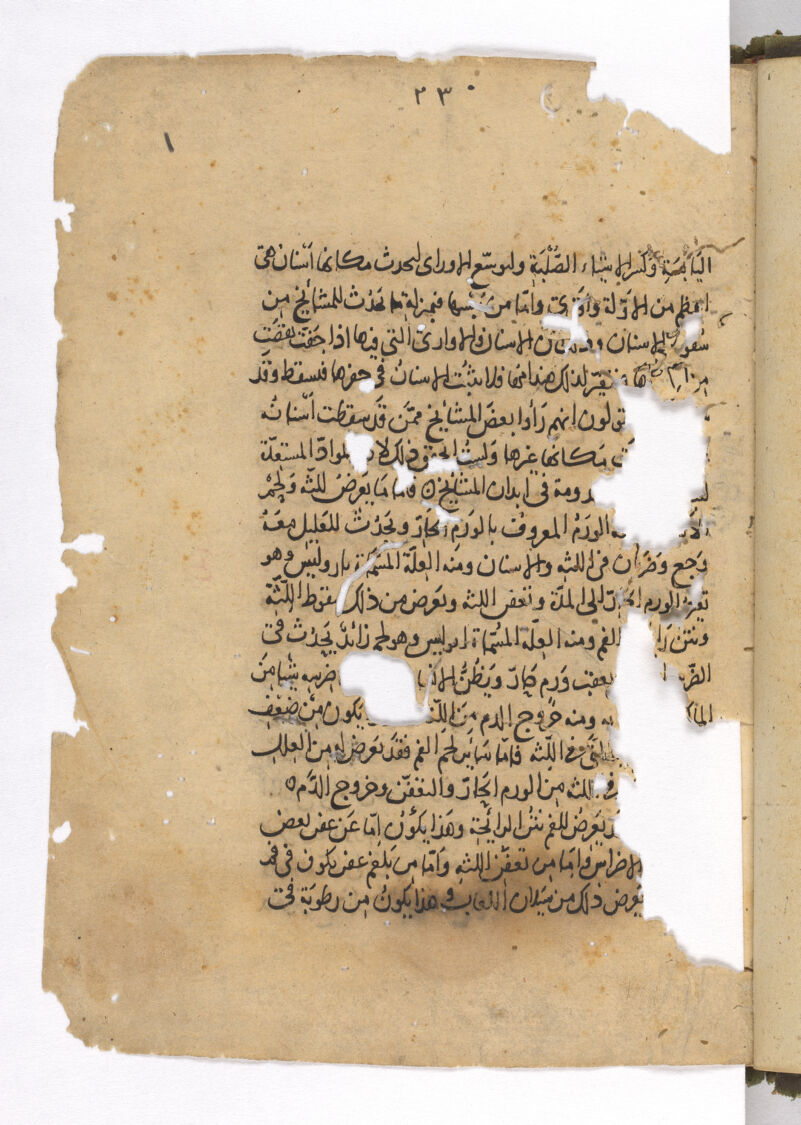 ٢٣٠
١
اليابسة وكسر الاشياء الصُّلْبَةِ وليوسّع الاوراى ليحدث مكانها اسنان هى
اعظم من الاوّلة واقوى وامّا من نفسها فبمنزلة ما يَحْدُث للمشائخ من
سُقوط الاسنان الاسنان والاوارى التى فيها اذا جَفّت نقصَت
لذلك هندامها فلا تثبُت الاسنانُ فى حفرها فتسقط وقد
يقولون انهم رَأوا بعضَ المشائخ ممّن قَد سقطت أسنانُه
مكانها غيرها وليست الحق وذلك لان المواد المستعدّة
فى ابدان المشائخ ٥ فاما ما يَعْرضُ للثه ولحْم
الورَمُ المعروف بالورَم الحارّ ويَحدُثُ للعليل معَهُ
وَجع وضربان فى اللثه والاسنان ومنه العِلّة المسَمّاة باروليس وهو
تغيّر الورم الحارّ الى المدّة وتعفن اللثه ويعرض من ذلك سقوط اللثّة
ونتن رائحة الفم ومنه العلّة المسُمّاة ابوليس وهو لحم زائدٌ يَحْدُث فى
بعقب وَرم حَارّ ويَظُنُّ ضرسه شيئا مِنَ
ومنه خروج الدم مِنَ يكون مِن ضعف
التى فى اللثه فامّا سَائر لحم الفم فقَد يَعرَض له من العلل
فى اللثه مِن الورم الحَارّ والتعفّن وخروج الدَّم ٥
يَعرِضُ للفم نتنُ الرائحَة وهَذا يكُونُ إمّا عَن عفن بعض
الاضراس وامّا مِن تعفّن اللثه وَامّا من بَلغم عفن يكون فى فم
يعرض ذلك من سَيَلان اللعاب وهذا يكونُ مِن رطوبَة فى